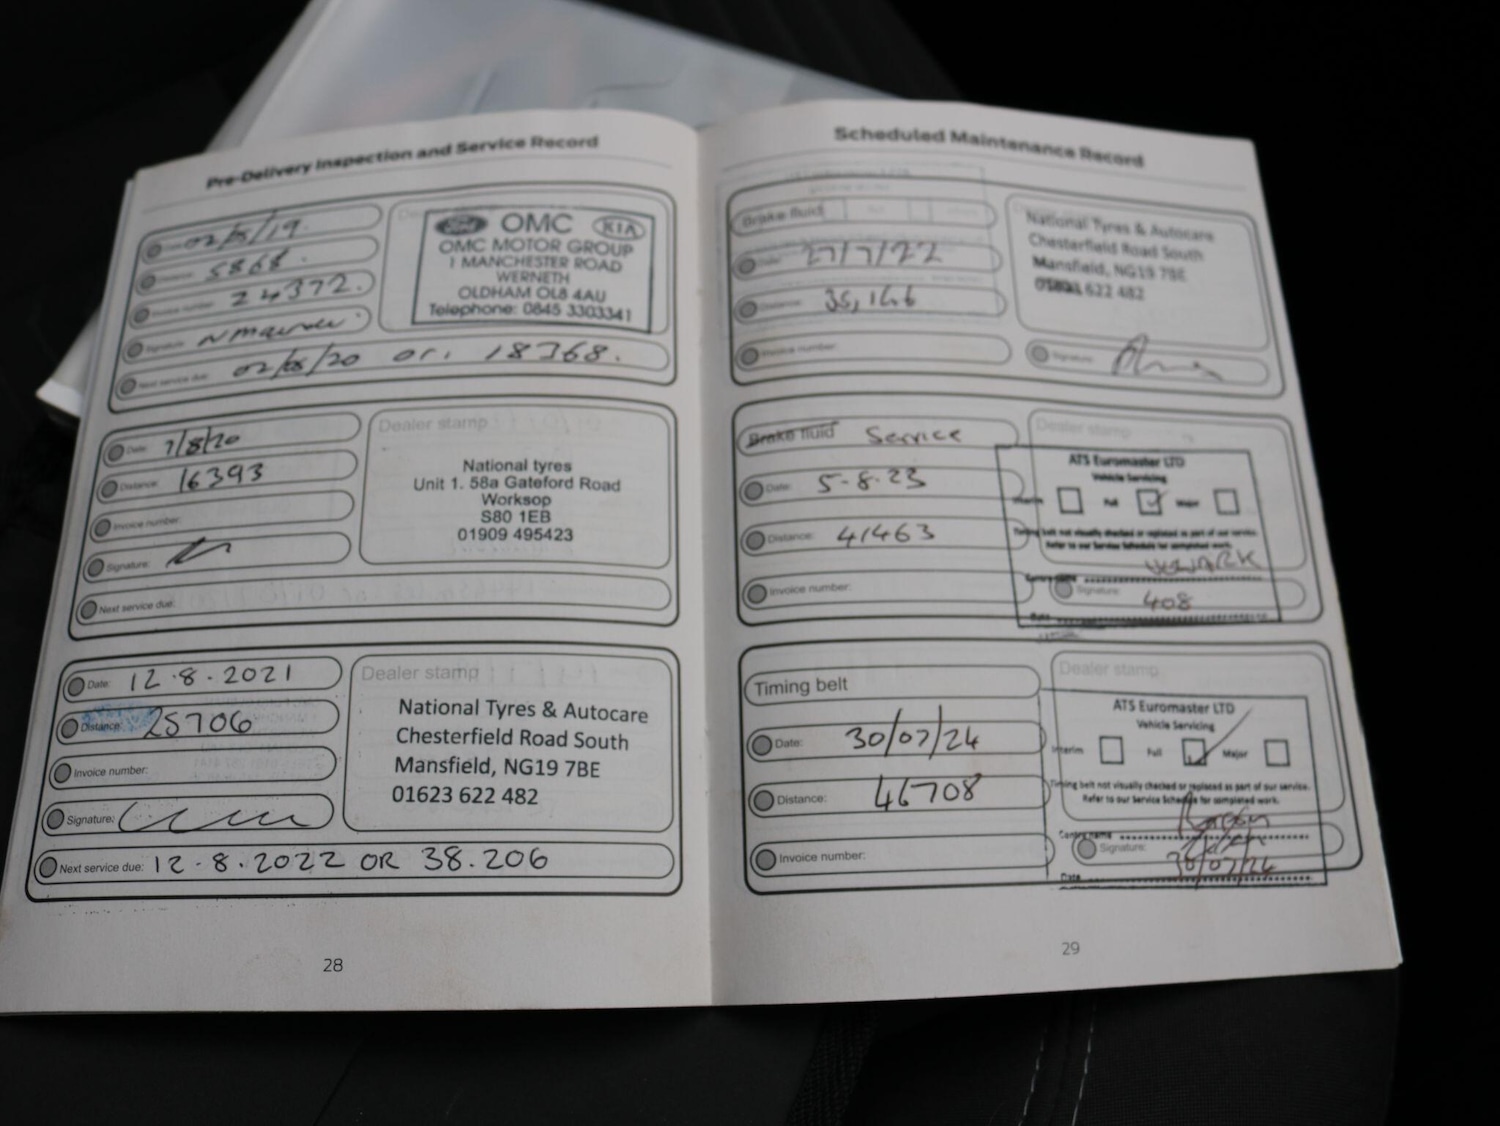 Pre-Delivery Inspection and Service Record
02/8/19.
5868.
Invoice number: 24372.
Signature:
Next service due: 02/8/20 or. 18368.
OMC KIA
OMC MOTOR GROUP
1 MANCHESTER ROAD
WERNETH
OLDHAM OL8 4AU
Telephone: 0845 3303341
Date: 7/8/20
Distance: 16393
Invoice number:
Signature:
Next service due:
Dealer stamp
National tyres
Unit 1. 58a Gateford Road
Worksop
S80 1EB
01909 495423
Date: 12.8.2021
Distance: 25706
Invoice number:
Signature:
Next service due: 12.8.2022 OR 38.206
Dealer stamp
National Tyres & Autocare
Chesterfield Road South
Mansfield, NG19 7BE
01623 622 482
28
Scheduled Maintenance Record
Brake fluid
Date: 27/7/22
Distance: 35,166
Invoice number:
National Tyres & Autocare
Chesterfield Road South
Mansfield, NG19 7BE
622 482
Signature:
Brake fluid Service
Date: 5-8-23
Distance: 41463
Invoice number:
Dealer stamp
ATS Euromaster LTD
Vehicle Servicing
Interim Full Major
Timing belt not visually checked or replaced as part of our service.
Refer to our Service Schedule for completed work.
NEWARK
Signature:
408
Timing belt
Date: 30/07/24
Distance: 46708
Invoice number:
Dealer stamp
ATS Euromaster LTD
Vehicle Servicing
Interim Full Major
Timing belt not visually checked or replaced as part of our service.
Refer to our Service Schedule for completed work.
Centre name
Signature:
Date 30/07/24
29